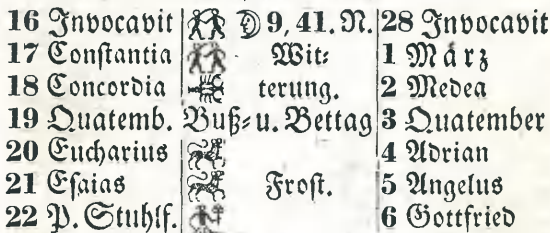 16 Invocavit 9, 41. N. 28 Invocavit
17 Constantia Wit⸗ 1 März
18 Concordia terung. 2 Medea
19 Quatemb. Buß⸗ u. Bettag 3 Quatember
20 Eucharius 4 Adrian
21 Esaias Frost. 5 Angelus
22 P. Stuhlf. 6 Gottfried